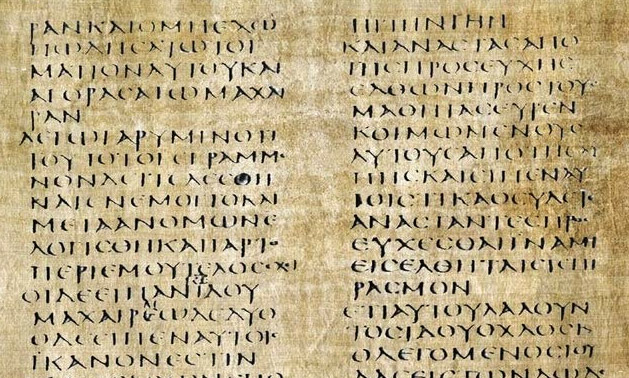 ΡΑΝΚΑΙΟΜΗΕΧΩ
ΠΩΛΗϹΑΤΩΤΟΙ
ΜΑΤΙΟΝΑΥΤΟΥΚΑΙ
ΑΓΟΡΑϹΑΤΩΜΑΧΑΙ
ΡΑΝ
ΛΕΓΩΓΑΡΥΜΙΝΟΤΙ
ΤΟΥΤΟΤΟΓΕΓΡΑΜΜΕ
ΝΟΝΔΕΙΤΕΛΕϹΘΗ
ΝΑΙΕΝΕΜΟΙΤΟΚΑΙ
ΜΕΤΑΑΝΟΜΩΝΕ
ΛΟΓΙϹΘΗΚΑΙΓΑΡΤΟ
ΠΕΡΙΕΜΟΥΤΕΛΟϹΕΧΙ
ΟΙΔΕΕΙΠΑΝΙΔΟΥ
ΜΑΧΑΙΡΕΩΔΕΔΥΟ
ΟΔΕΕΙΠΕΝΑΥΤΟΙϹ
ΙΚΑΝΟΝΕϹΤΙΝ
ΠΙΤΗΝΓΗΝ
ΚΑΙΑΝΑϹΤΑϹΑΠΟ
ΤΗϹΠΡΟϹΕΥΧΗϹ
ΕΛΘΩΝΠΡΟϹΤΟΥϹ
ΜΑΘΗΤΑϹΕΥΡΕΝ
ΚΟΙΜΩΜΕΝΟΥϹ
ΑΥΤΟΥϹΑΠΟΤΗϹΛΥ
ΠΗϹΚΑΙΕΙΠΕΝΑΥ
ΤΟΙϹΤΙΚΑΘΕΥΔΕΤΕ
ΑΝΑϹΤΑΝΤΕϹΠΡΟϹ
ΕΥΧΕϹΘΑΙΝΑΜΗ
ΕΙϹΕΛΘΗΤΑΙΕΙϹΠΙ
ΡΑϹΜΟΝ
ΕΤΙΑΥΤΟΥΛΑΛΟΥΝ
ΤΟϹΙΔΟΥΟΧΛΟϹΚΑΙ
ΟΛΕΓΟΜΕΝΟϹΙΟΥ